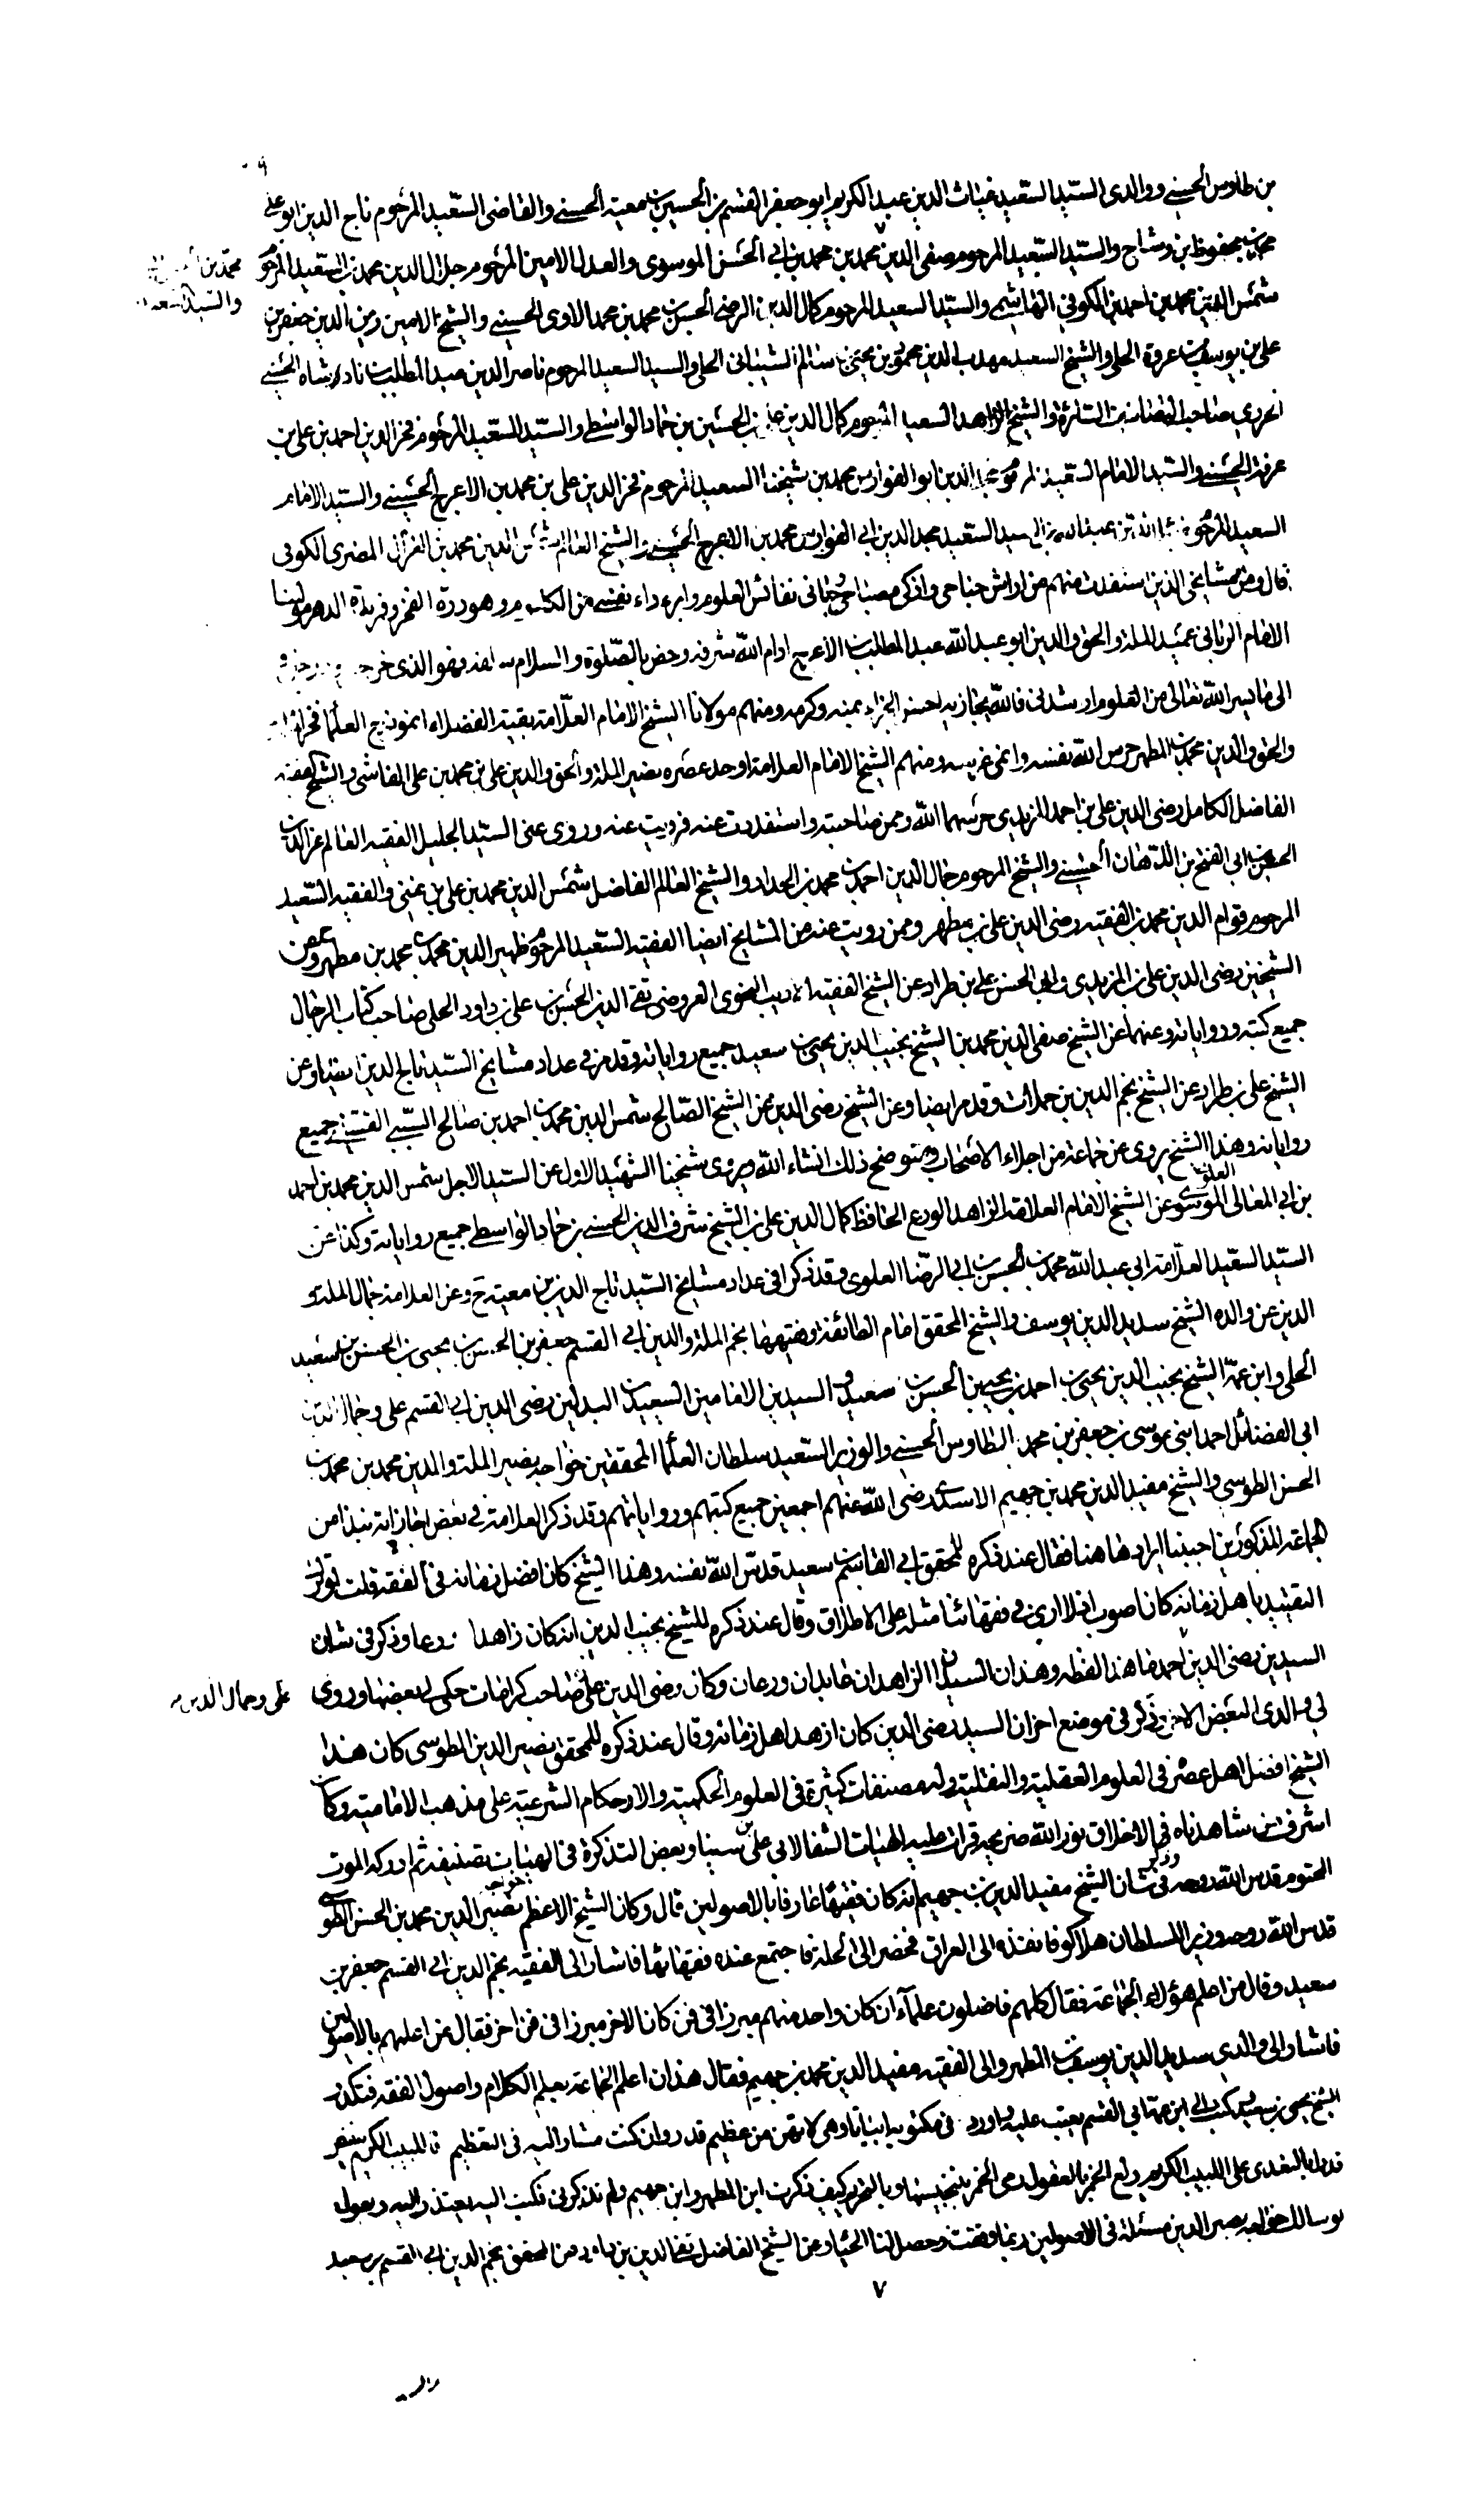 بن طاوس الحسنى ووالدى السيد السعيد غياث الدين عبد الكريم ابو جعفر القسم بن الحسين بن معية الحسنى والقاضى السعيد المرحوم تاج الدين ابو على
محمد بن محفوظ بن وشاح والسيد السعيد المرحوم صفى الدين محمد بن محمد بن ابى الحسن الموسوى والعدل الامين المرحوم جلال الدين محمد بن السعيد المرحوم
محمد بن
والسيد السعيد
شمس الدين محمد بن احمد بن الكوفى الهاشمى والسيد السعيد المرحوم كمال الدين الرضى الحسن بن محمد بن محمد الاوى الحسينى والشيخ الامين زين الدين جعفر بن
على بن يوسف بن عروة الحلى والشيخ السعيد مهذب الدين محمود بن يحيى بن سالم الشيبانى الحلى والسيد السعيد المرحوم ناصر الدين عبد المطلب بن پادشاه الحسينى
الخرزى صاحب التصانيف السائرة والشيخ الزاهد السعيد المرحوم كمال الدين على بن الحسين بن حماد الواسطى والسيد السعيد المرحوم فخر الدين احمد بن على بن
عرفة الحسينى والسيد الامام السعيد المرحوم مجد الدين ابو الفوارس محمد بن شيخنا السعيد المرحوم فخر الدين على بن محمد بن الاعرج الحسينى والسيد الامام
السعيد المرحوم ضياء الدين عبد الله بن السيد السعيد مجد الدين ابى الفوارس محمد بن الاعرج الحسينى والشيخ العالم شمس الدين محمد بن الغزال المضرى الكوفى
قال ومن مشايخى الذين استفدت منهم من اراش جناحى واذكى مصباحى وحبانى نفائس العلوم وابرء داء نفسى من الكلوم وهو درة الفخر وفريدة الدهر مولينا
الامام الربانى عميد الملة والحق والدين ابو عبد الله عبد المطلب بن الاعرج ادام الله شرفه وخص بالصلوة والسلام سلفه فهو الذى خرجنى ودرجنى و
الى ما يسر الله تعالى من العلوم ارشدنى فالله يجازيه احسن الجزاء بمنه وكرمه ومنهم مولانا الشيخ الامام العلامة بقية الفضلاء انموذج العلما فخر الملة
والحق والدين محمد بن المطهر حرس الله نفسه وانمى غرسه ومنهم الشيخ الامام العلامة اوحد عصره نصير الملة والحق والدين على بن محمد بن على القاشى والشيخ الفقيه
الفاضل الكامل رضى الدين على بن احمد المزيدى حرسهما الله وممن صاحبته واستفدت عنه فرويت عنه وروى عنى السيد الجليل الفقيه العالم عز الدين
الحسن بن ابى الفتح بن الدهان الحسينى والشيخ المرحوم جمال الدين احمد بن محمد بن الحداد والشيخ العالم الفاضل شمس الدين محمد بن على بن غنى والفقيه السعيد
المرحوم قوام الدين محمد بن الفقيه رضى الدين على بن مطهر وممن رويت عنه من المشايخ ايضا الفقيه السعيد المرحوم ظهير الدين محمد بن محمد بن مطهر وعن
الشيخين رضى الدين على بن المزيدى وابى الحسن على بن طراد عن الشيخ الفقيه الاديب النحوى العروضى تقى الدين الحسن بن على بن داود الحلى صاحب كتاب الرجال
جميع كتبه ورواياته وعنهما عن الشيخ صفى الدين محمد بن الشيخ نجيب الدين يحيى بن سعيد جميع رواياته وقد مر فى عداد مشايخ السيد تاج الدين ايضا وعن
الشيخ على بن طراد عن الشيخ نجم الدين بن حملات وقد مر ايضا وعن الشيخ رضى الدين عن الشيخ الصالح شمس الدين محمد بن احمد بن صالح السيبى القسينى جميع
رواياته وهذا الشيخ يروى عن جماعة من اجلاء الاصحاب وستوضح ذلك انشاء الله ويروى شيخنا الشهيد الاول عن السيد الاجل شمس الدين محمد بن احمد
بن ابى المعالى العلوى الموسوى عن الشيخ الامام العلامة الزاهد الورع الحافظ كمال الدين على بن الشيخ شرف الدين الحسين بن حماد الواسطى جميع رواياته وكذا عن
السيد السعيد العلامة ابى عبد الله محمد بن الحسن بن ابى الرضا العلوى وقد ذكرا فى عداد مشايخ السيد تاج الدين بن معية ح وعن العلامة جمال الملة و
الدين عن والده الشيخ سديد الدين يوسف والشيخ المحقق امام الطائفة وفقيهها نجم الملة والدين ابى القسم جعفر بن الحسن بن يحيى بن الحسن بن سعيد
الحلى وابن عمه الشيخ نجيب الدين يحيى بن احمد بن يحيى بن الحسن بن سعيد والسيدين الامامين السعيدين البدلين رضى الدين ابى القسم على وجمال الدين
ابى الفضائل احمد ابنى موسى بن جعفر بن محمد الطاوس الحسينى والوزير السعيد سلطان العلما المحققين خواجه نصير الملة والدين محمد بن محمد بن
الحسن الطوسى والشيخ مفيد الدين محمد بن جهيم الاسدى رضى الله عنهم اجمعين جميع كتبهم ورواياتهم وقد ذكر العلامة فى بعض اجازاته نبذا من
الجماعة المذكورين احببنا ايرادها هنا فقال عند ذكره للمحقق ابى القاسم بن سعيد قدس الله نفسه وهذا الشيخ كان افضل زمانه فى الفقه قلت لو ترك
التقييد باهل زمانه كان اصوب اذ لا ارى فى فقهائنا مثله على الاطلاق وقال عند ذكره للشيخ نجيب الدين انه كان زاهدا ورعا وذكر فى شان
السيدين رضى الدين احمد ما هذا لفظه وهذان السيدان الزاهدان عابدان ورعان وكان رضى الدين على صاحب كرامات حكى لى بعضها وروى
على وجمال الدين
لى والدى البعض الاخر وذكر فى موضع اخر ان السيد رضى الدين كان ازهد اهل زمانه وقال عند ذكره للمحقق نصير الدين الطوسى كان هذا
الشيخ افضل اهل عصره فى العلوم العقلية والنقلية وله مصنفات كثيرة فى العلوم الحكمية والاحكام الشرعية على مذهب الامامية وكان
اشرف من شاهدناه فى الاخلاق نور الله ضريحه قرات عليه الهيات الشفا لابى على بن سينا وبعض التذكرة فى الهيات تصنيفه ثم ادركه الموت
المحتوم قدس الله روحه وذكر فى شان الشيخ مفيد الدين بن جهيم انه كان فقيها عارفا بالاصولين قال وكان الشيخ الاعظم خواجه نصير الدين محمد بن الحسن الطوسى
قدس الله روحه وزيرا للسلطان هلاكو فانفذه الى العراق فحضر الى الحلة فاجتمع عنده فقهائها فاشار الى الفقيه نجم الدين ابى القسم جعفر بن
سعيد وقال من اعلم هؤلاء الجماعة فقال كلهم فاضلون علماء ان كان واحد منهم مبرزا فى فن كان الاخر مبرزا فى فن اخر فقال من اعلمهم بالاصولين
فاشار الى والدى سديد الدين يوسف بن المطهر والى الفقيه مفيد الدين محمد بن جهيم فقال هذان اعلم الجماعة بعلم الكلام واصول الفقه فتكدر
الشيخ يحيى بن سعيد وكتب الى ابن عمه ابى القسم يعتب عليه واورد فى مكتوبه ابياتا وهى لا تهن من عظيم قدر وان كنت مشارا اليه فى التعظيم فاللبيب الكريم ينقص
قدرا بالتعدى على اللبيب الكريم ولع الخمر بالعقول رمى الخمر بتنجيسها وبالتحريم كيف ذكرت ابن المطهر وابن جهيم ولم تذكرنى فكتب اليه يعتذر اليه ويقول
لو سالك خواجه نصير الدين مسئلة فى الاصولين ربما وقفت وحصل لنا الحياء وعن الشيخ الفاضل تقى الدين بن داود عن المحقق نجم الدين ابى القسم بن سعيد
٧